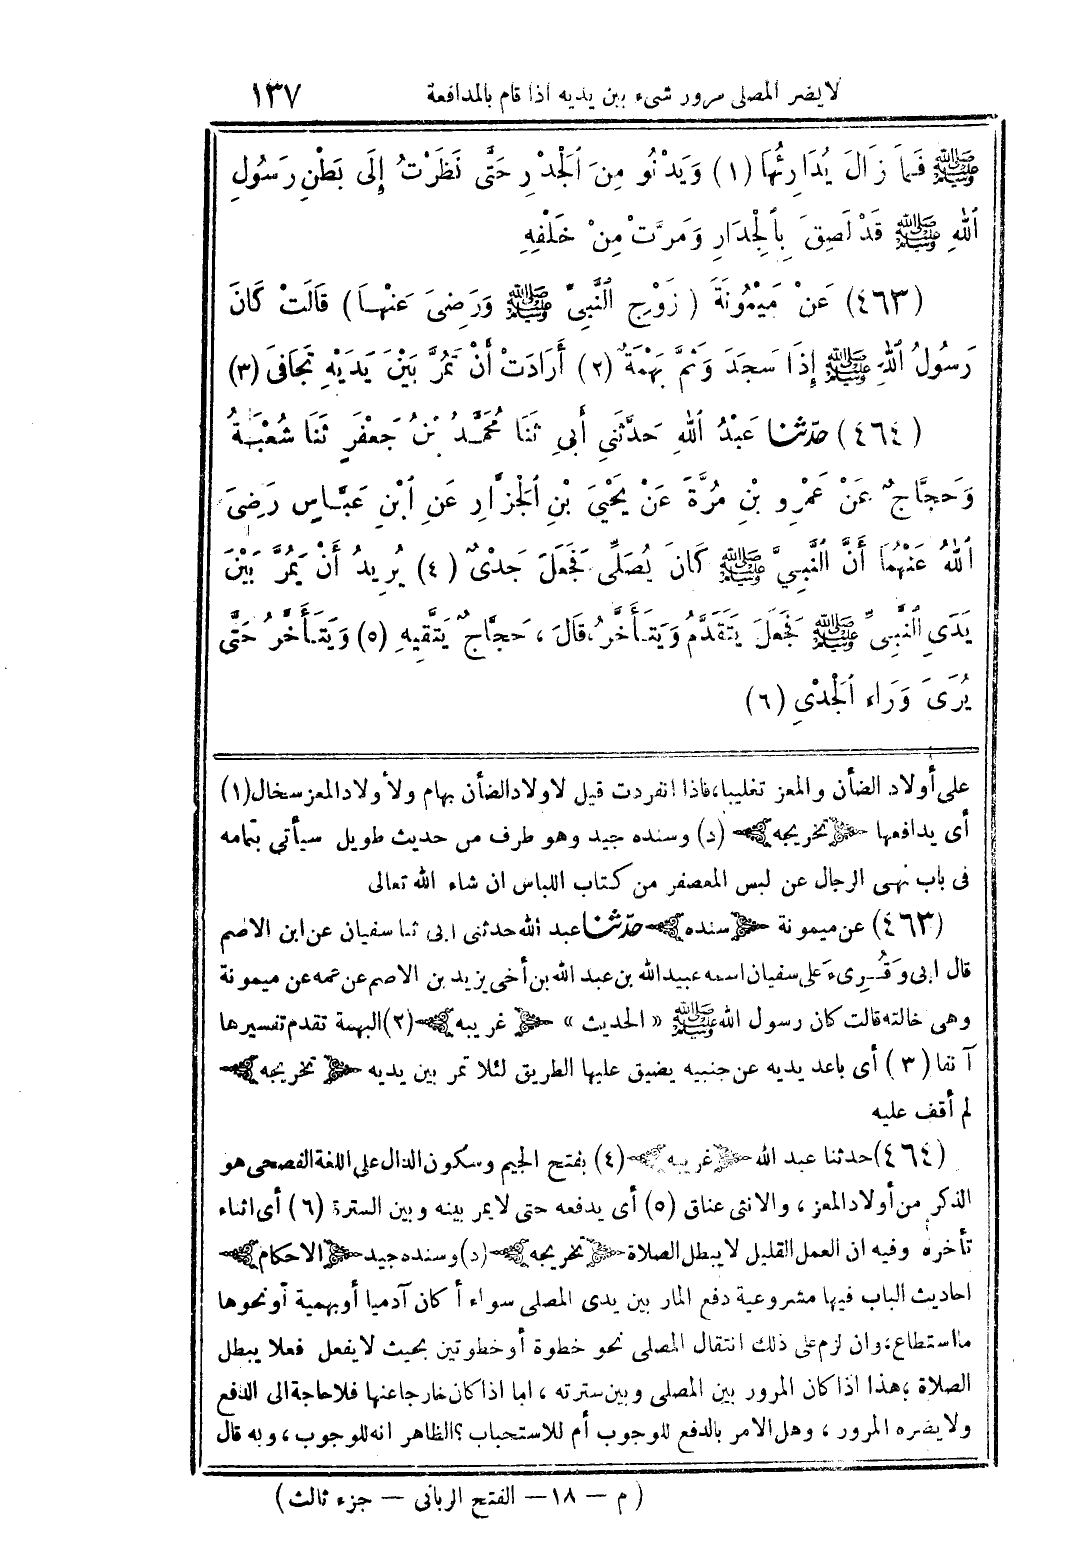 لا يضر المصلى مرور شىء بين يديه اذا قام بالمدافعة ١٣٧
ﷺ فَمَا زَالَ يُدَارِئُهَا (١) وَيَدْنُو مِنَ الْجَدْرِ حَتَّى نَظَرْتُ إِلَى بَطْنِ رَسُولِ
اللهِ ﷺ قَدْ لَصِقَ بِالْجِدَارِ وَمَرَّتْ مِنْ خَلْفِهِ
(٤٦٣) عَنْ مَيْمُونَةَ ( زَوْجِ النَّبِيِّ ﷺ وَرَضِىَ عَنْهَا ) قَالَتْ كَانَ
رَسُولُ اللهِ ﷺ إِذَا سَجَدَ وَثَمَّ بَهْمَةٌ (٢) أَرَادَتْ أَنْ تَمُرَّ بَيْنَ يَدَيْهِ تَجَافَى (٣)
(٤٦٤) حدّثنا عَبْدُ اللهِ حَدَّثَنِي أَبِي ثَنَا مُحَمَّدُ بْنُ جَعْفَرٍ ثَنَا شُعْبَةُ
وَحَجَّاجٌ عَنْ عَمْرِو بْنِ مُرَّةَ عَنْ يَحْيَى بْنِ الْجَزَّارِ عَنِ ابْنِ عَبَّاسٍ رَضِىَ
اللهُ عَنْهُمَا أَنَّ النَّبِيَّ ﷺ كَانَ يُصَلِّى فَجَعَلَ جَدْىٌ (٤) يُرِيدُ أَنْ يَمُرَّ بَيْنَ
يَدَىِ النَّبِيِّ ﷺ فَجَعَلَ يَتَقَدَّمُ وَيَتَأَخَّرُ، قَالَ ، حَجَّاجٌ يَتَّقِيهِ (٥) وَيَتَأَخَّرُ حَتَّى
يُرَىَ وَرَاء الْجَدْىِ (٦)
على أولاد الضأن والمعز تغليبا، فاذا انفردت قيل لاولاد الضأن بهام ولأولاد المعز سخال (١)
أى يدافعها ﴿تخريجه﴾ (د) وسنده جيد وهو طرف من حديث طويل سيأتي بتمامه
فى باب نهى الرجال عن لبس المعصفر من كتاب اللباس ان شاء الله تعالى
(٤٦٣) عن ميمونة ﴿سنده﴾ حدّثنا عبد الله حدثنى ابى ثنا سفيان عن ابن الاصم
قال ابى وقُرِىءَ على سفيان اسمه عبيد الله بن عبد الله بن أخى يزيد بن الاصم عن عمه عن ميمونة
وهى خالته قالت كان رسول الله ﷺ « الحديث » ﴿غريبه﴾ (٢) البهمة تقدم تفسيرها
آنفا (٣) أى باعد يديه عن جنبيه يضيق عليها الطريق لئلا تمر بين يديه ﴿تخريجه﴾
لم أقف عليه
(٤٦٤) حدثنا عبد الله ﴿غريبه﴾ (٤) بفتح الجيم وسكون الدال على اللغة الفصحى هو
الذكر من أولاد المعز ، والانثى عناق (٥) أى يدفعه حتى لا يمر بينه وبين السترة (٦) أى اثناء
تأخره وفيه ان العمل القليل لا يبطل الصلاة ﴿تخريجه﴾ (د) وسنده جيد ﴿الاحكام﴾
احاديث الباب فيها مشروعية دفع المار بين يدى المصلى سواء أكان آدميا أو بهيمية أو نحوها
ما استطاع؛ وان لزم على ذلك انتقال المصلى نحو خطوة أو خطوتين بحيث لا يفعل فعلا يبطل
الصلاة ؛ هذا اذا كان المرور بين المصلى وبين سترته ، اما اذا كان خارجا عنها فلا حاجة الى الدفع
ولا يضره المرور ، وهل الامر بالدفع للوجوب أم للاستحباب ؟ الظاهر انه للوجوب ، وبه قال
( م – ١٨ – الفتح الربانى – جزء ثالث )